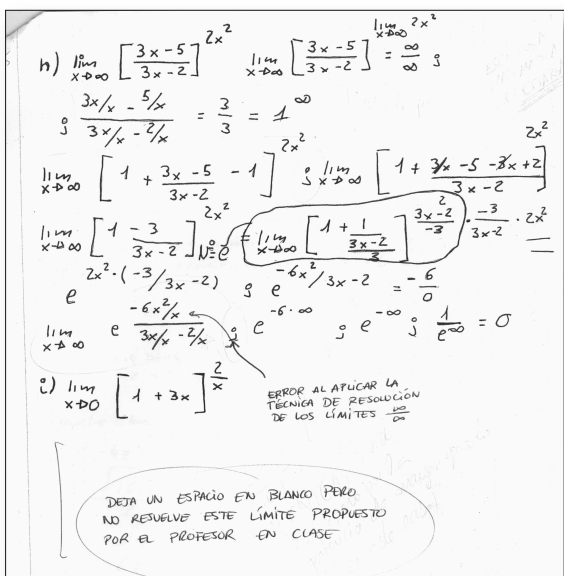 h) lim x→∞ [ (3x-5)/(3x-2) ]^(2x²)   lim x→∞ [ (3x-5)/(3x-2) ]^(lim x→∞ 2x²) = ∞/∞ ;
; (3x/x - 5/x)/(3x/x - 2/x) = 3/3 = 1^∞
lim x→∞ [ 1 + (3x-5)/(3x-2) - 1 ]^(2x²) ; lim x→∞ [ 1 + (3x-5-3x+2)/(3x-2) ]^(2x²)
lim x→∞ [ 1 - 3/(3x-2) ]^(2x²) = lim x→∞ [ 1 + 1/((3x-2)/3) ]^((3x-2)/-3 · -3/(3x-2) · 2x²)
e^(2x²·(-3/3x-2)) ; e^(-6x²/3x-2) = -6/0
lim x→∞ e^((-6x²/x)/(3x/x - 2/x)) ; e^(-6·∞) ; e^(-∞) ; 1/e^∞ = 0
i) lim x→0 [ 1 + 3x ]^(2/x)
ERROR AL APLICAR LA
TÉCNICA DE RESOLUCIÓN
DE LOS LÍMITES ∞/∞
DEJA UN ESPACIO EN BLANCO PERO
NO RESUELVE ESTE LÍMITE PROPUESTO
POR EL PROFESOR EN CLASE